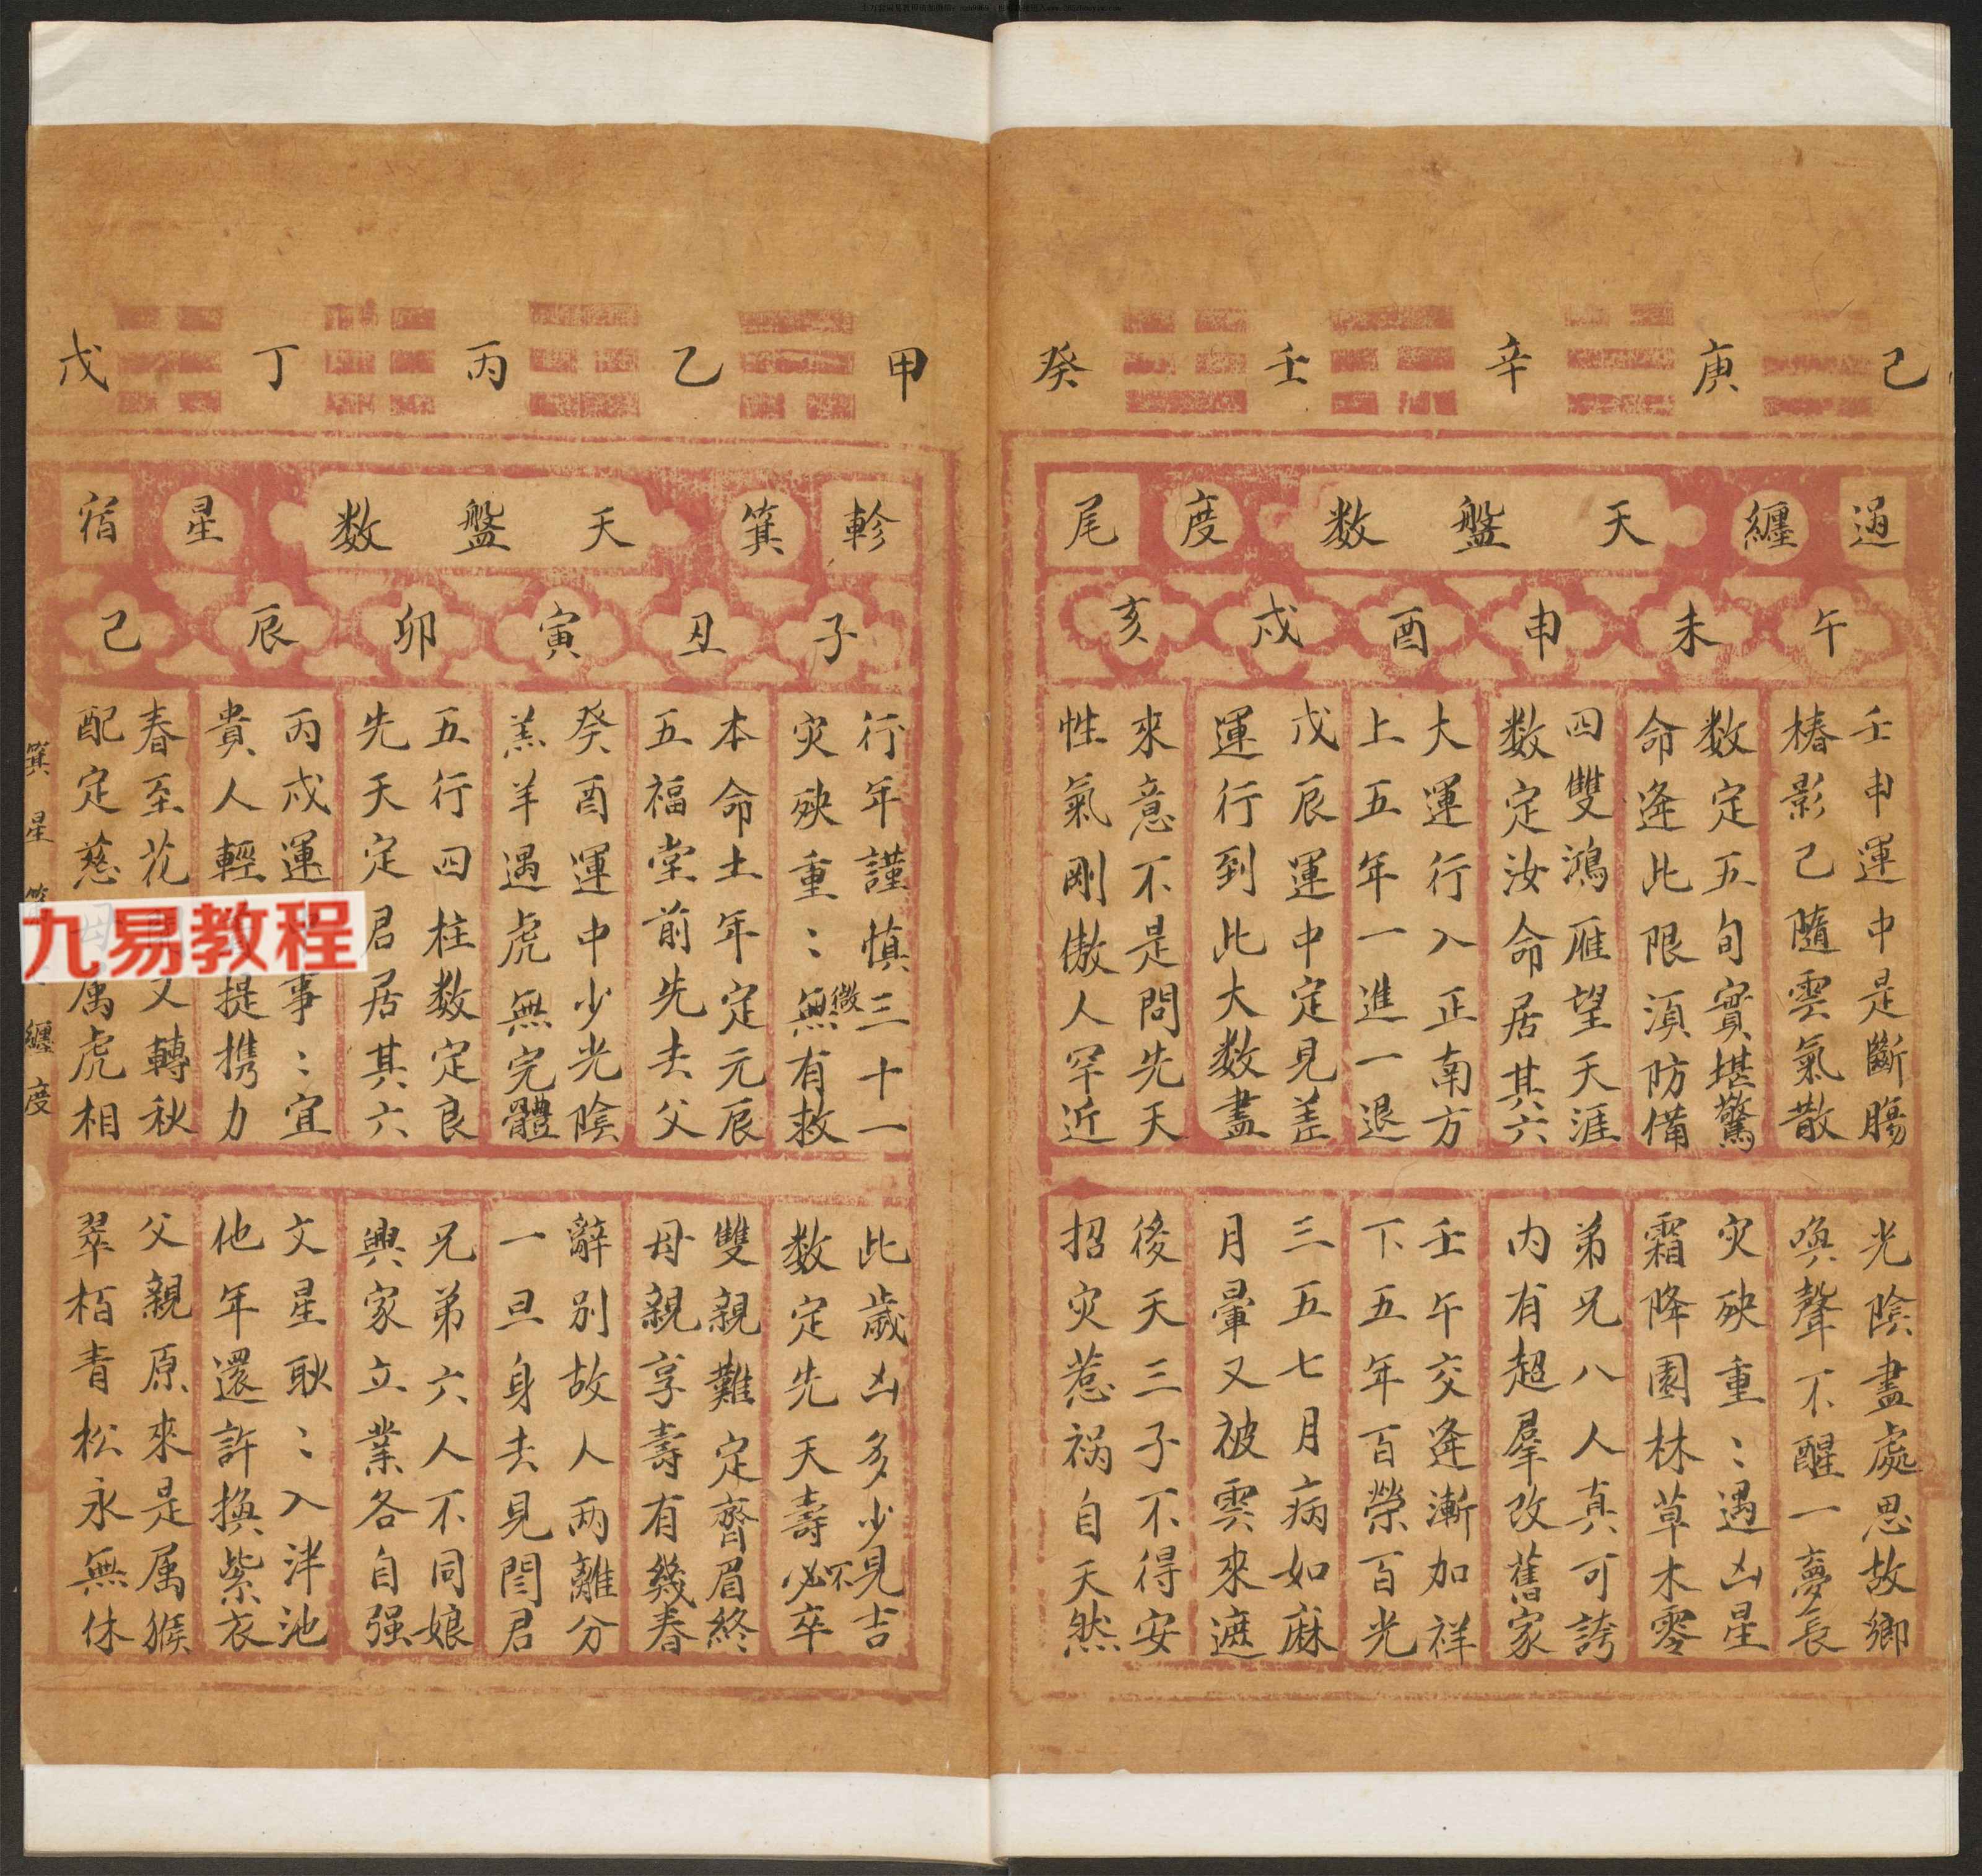 己 庚 辛 壬 癸
過 纏 天 盤 数 度 尾
午 未 申 酉 戌 亥
壬申運中是斷腸
椿影己隨雲氣散
数定五旬實堪驚
命逢此限湏防備
四雙鴻雁望天涯
数定汝命居其六
大運行入正南方
上五年一進一退
戊辰運中定見差
運行到此大数盡
來意不是問先天
性氣剛傲人罕近
光陰盡處思故鄉
喚聲不醒一夢長
灾殃重〻遇凶星
霜降園林草木零
弟兄八人真可誇
内有超羣改舊家
壬午交逢漸加祥
下五年百榮百光
三五七月病如麻
月暈又被雲來遮
後天三子不得安
招灾惹祸自天然
甲 乙 丙 丁 戊
軫 箕 天 盤 数 星 宿
子 丑 寅 卯 辰 己
行年謹慎三十一
灾殃重〻無微有救
本命土年定元辰
五福堂前先去父
癸酉運中少光陰
羔羊遇虎無完體
五行四柱数定良
先天定君居其六
丙戌運事〻宜
貴人輕提携力
春至花又轉秋
配定慈属虎相
此歲凶多少見吉
数定先天壽必不卒
雙親難定齊眉終
母親享壽有幾春
辭别故人兩離分
一旦身去見閻君
兄弟六人不同娘
興家立業各自强
文星耿〻入泮池
他年還許換紫衣
父親原來是属猴
翠栢青松永無休
箕 星 纏 度
九易教程